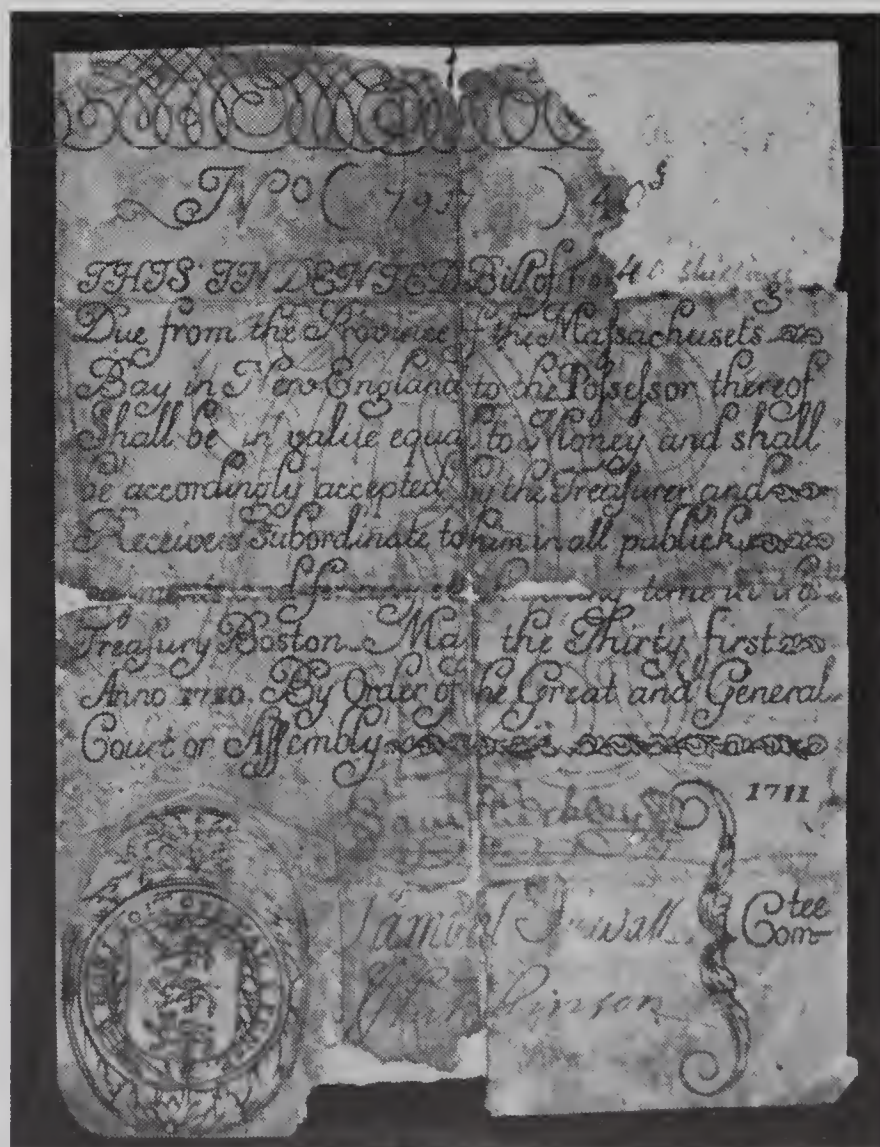 No ( 7937 ) 40s
THIS INDENTED Bill of 40 Shillings
Due from the Province of the Massachusets
Bay in New England to the Possessor thereof
Shall be in value equal to Money and shall
be accordingly accepted by the Treasurer and
Receivers Subordinate to him in all publick
time in the
Treasury Boston May the Thirty first
Anno 1710. By Order of the Great and General
Court or Assembly
1711
Samuel Sewall
Com-tee
Hutchinson
HONI SOIT